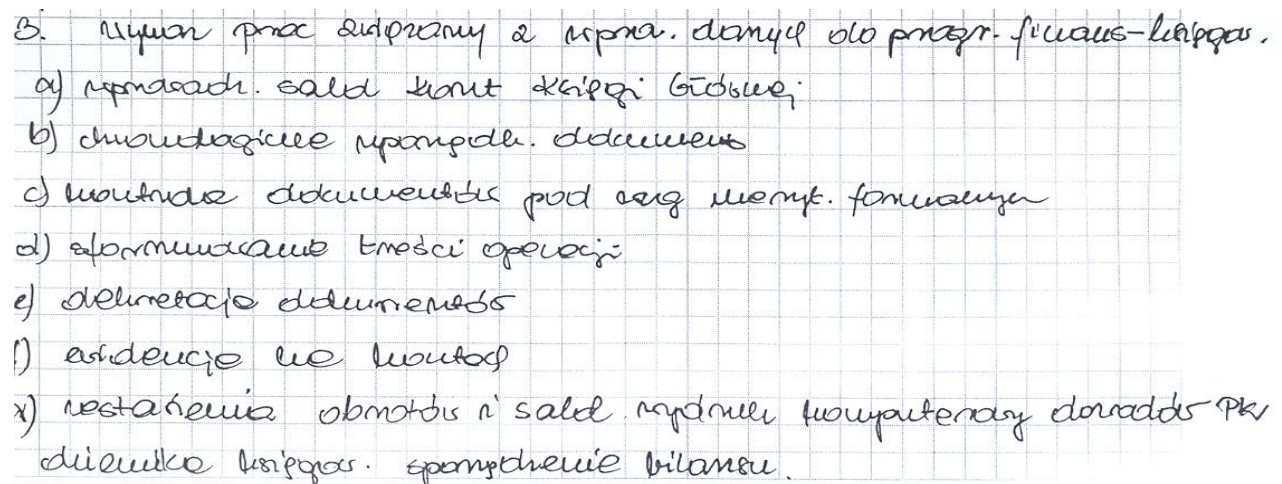 3. Wykaz prac związany z wpro. danych do progr. finans-księgow.
a) wprowadz. sald kont księgi Głównej
b) chronologiczne uporządk. dokument
c) kontrola dokumentów pod wzg meryt. formalnym
d) sformułowanie treści operacji
e) dekretacja dokumentów
f) ewidencja na kontach
x) zestawienia obrotów i sald wydruk komputerowy dowodów PK,
dziennika księgow. sporządzenie bilansu.